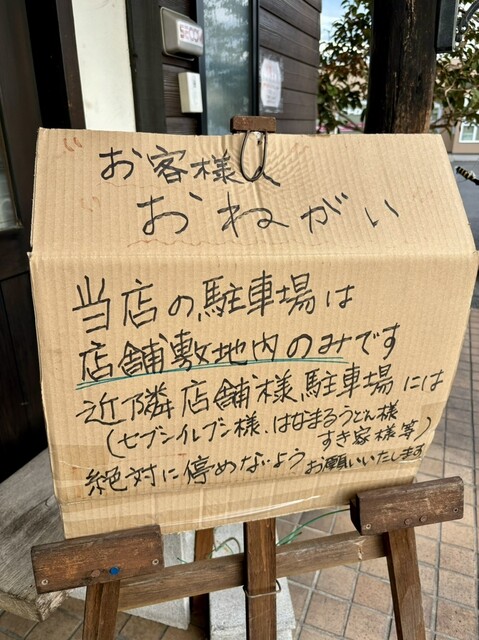 SECOM
お客様へ
おねがい
当店の駐車場は
店舗敷地内のみです
近隣店舗様駐車場には
(セブンイレブン様、はなまるうどん様
すき家様等)
絶対に停めないようお願いいたします